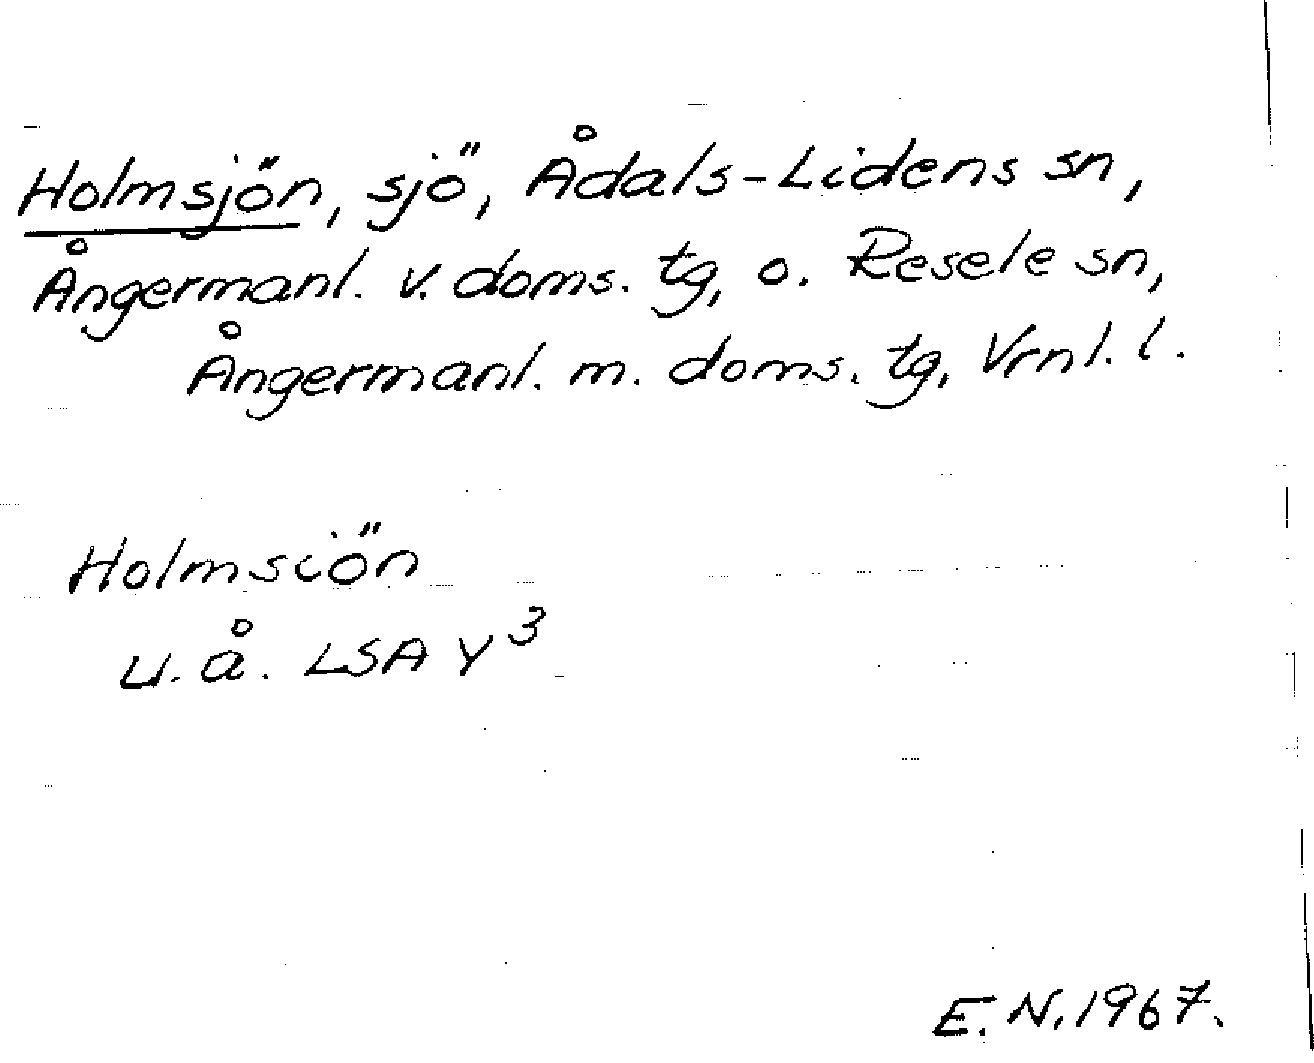 Holmsjön, sjö, Ådals-Lidens sn,
Ångermanl. v. doms. tg, o. Resele sn,
Ångermanl. m. doms. tg, Vrnl. l.
Holmsiön
u. å. LSA Y³
E. N. 1967.